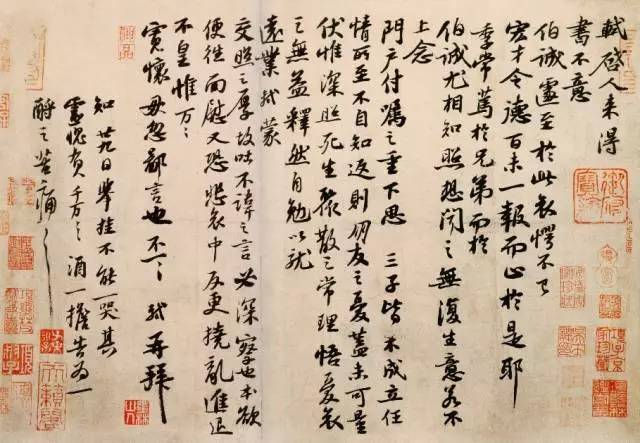 軾啓人來得
書不意
伯誠遽至於此哀愕不已
宏才令德百未一報而止於是耶
季常篤於兄弟而於
伯誠尤相知照想聞之無復生意若不
上念
門戶付囑之重下思三子皆不成立任
情所至不自知返則朋友之憂蓋未可量
伏惟深照死生聚散之常理悟憂哀
之無益釋然自勉以就
遠業軾蒙
交照之厚故吐不諱之言必深察也本欲
便往面慰又恐悲哀中反更撓亂進退
不皇惟萬々
寬懷毋忽鄙言也不一々軾再拜
知廿九日舉掛不能一哭其
靈愧負千萬々々酒一擔告為一
酹之苦痛々々